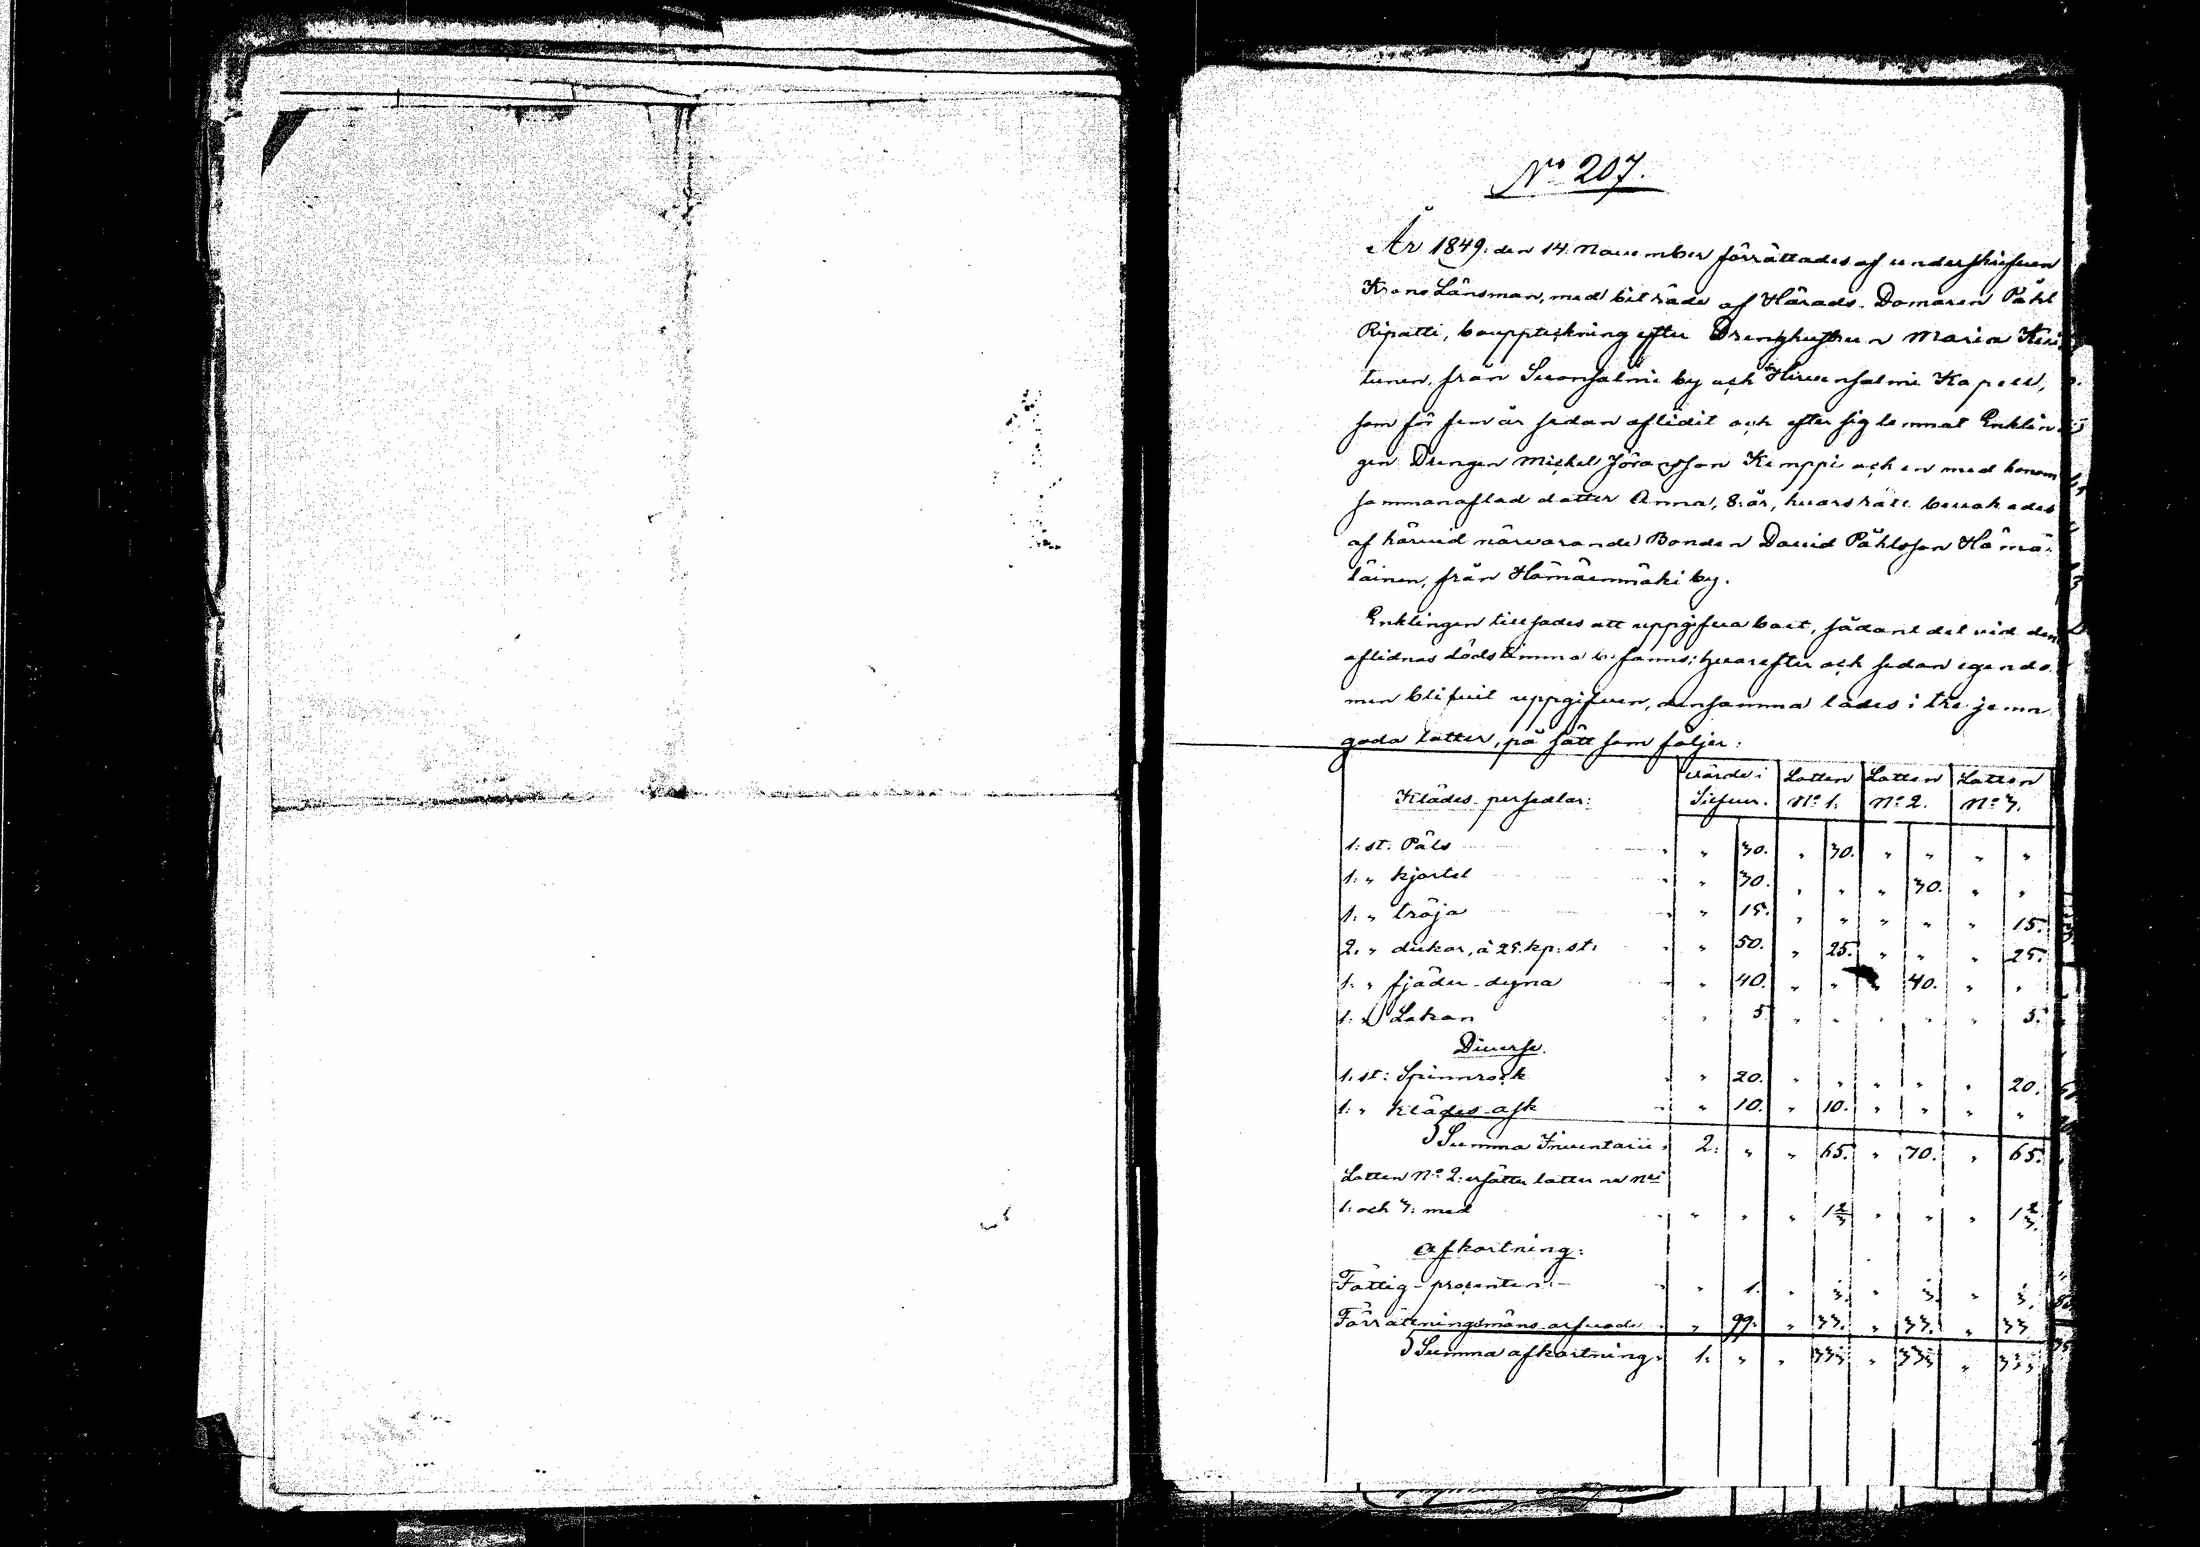 No 207.
År 1849. den 14. November förrättades af underskrifven
Krono Länsman, med biträde af Härads-Domaren Påhl
Ripatti, bouppteckning efter Drenghustrun Maria
tunen, från Suonsalmi by och Hirvensalmi Kapell,
som för fem år sedan aflidit och efter sig lemnat Enklin
gen Drengen Michel Jöransson Kemppi och en med honom
sammanaflad dotter Anna, 8. år, hvars rätt bevakades
af härvid närvarande Bonden David Påhlsson Hämä-
läinen, från Hämäenmäki by.
Enklingen tillsades att uppgifva boet, sådant det vid den
aflidnas dödstimma befanns; hvarefter och sedan egendo-
men blifvit uppgifven, densamma lades i tre jemn
goda lotter, på sätt som följer:
Klädes-persedlar: Värde i Silfver. Lotten No 1. Lotten No 2. Lotten No 3.
1. st. Päls " 30. " 30. " " " "
1. " kjortel " 30. " " " 30. " "
1. " tröja " 15. " " " " " 15.
2. " dukar, à 25. kp. st. " 50. " 25. " " " 25.
1. " fjäder-dyna " 40. " " " 40. " "
1. " Lakan " 5 " " " " " 5.
Diverse.
1. st. Spinnrock " 20. " " " " " 20.
1. " Klädes-ask " 10. " 10. " " " "
Summa Inventarii 2. " " 65. " 70. " 65.
Lotten No 2. ersätter lotterne Nri
1. och 3. med " " " 1 2/3 " " " 1 2/3.
Afkortning:
Fattig-procenten " 1. " 1/3. " 1/3. " 1/3.
Förrättningsmäns arfvode " 99. " 33. " 33. " 33
Summa afkortning 1. " " 33 1/3 " 33 1/3 " 33 1/3